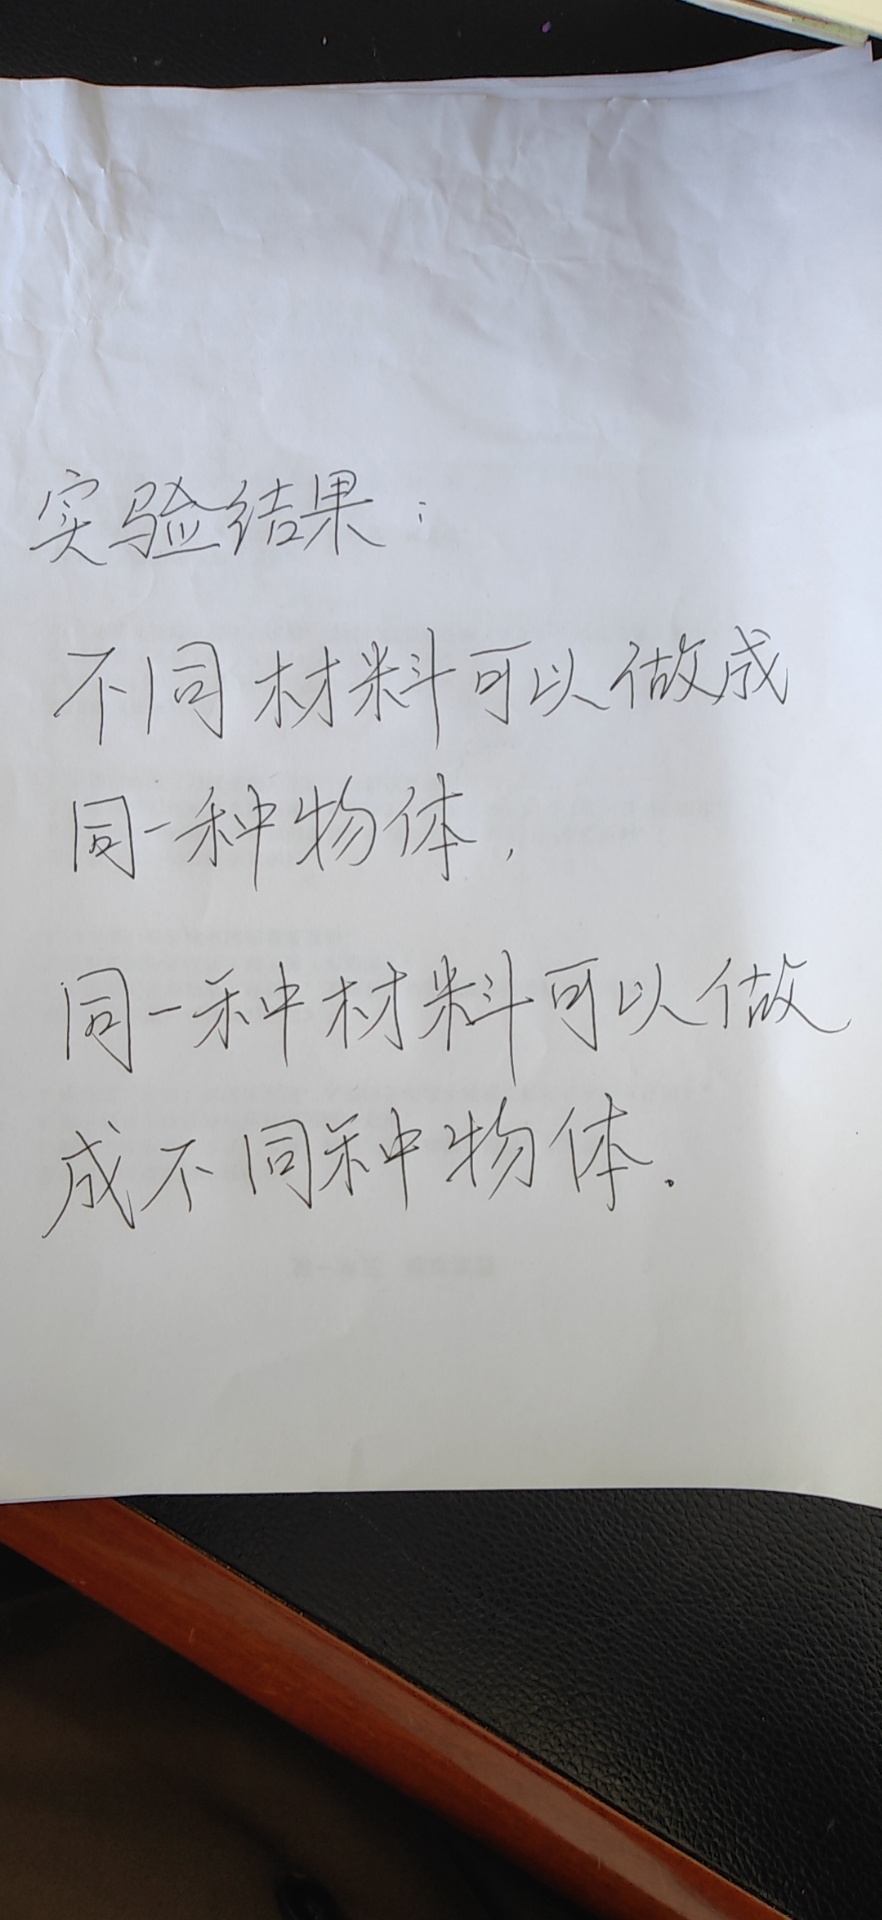 实验结果：
不同材料可以做成
同一种物体，
同一种材料可以做
成不同种物体.